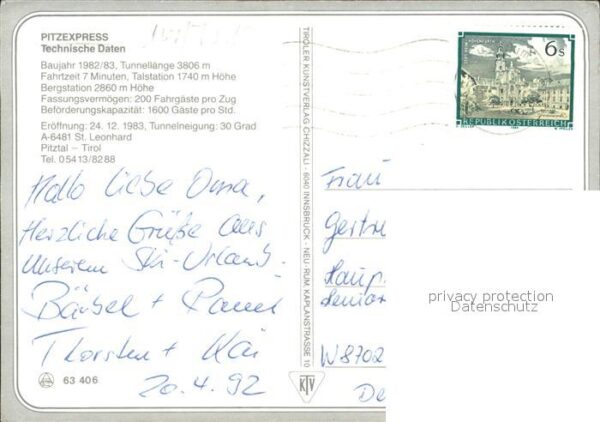 PITZEXPRESS
Technische Daten
Baujahr 1982/83, Tunnellänge 3806 m
Fahrtzeit 7 Minuten, Talstation 1740 m Höhe
Bergstation 2860 m Höhe
Fassungsvermögen: 200 Fahrgäste pro Zug
Beförderungskapazität: 1600 Gäste pro Std.
Eröffnung: 24. 12. 1983, Tunnelneigung: 30 Grad
A-6481 St. Leonhard
Pitztal – Tirol
Tel. 05413/8288
Hallo liebe Oma,
Herzliche Grüße aus
unserem Ski-Urlaub.
Bärbel +
Thorsten + Kai
20.4.92
63 406
TIROLER KUNSTVERLAG CHIZZALI · 6040 INNSBRUCK - NEU-RUM, KAPLANSTRASSE 10
KTV
6s
REPUBLIK ÖSTERREICH
Frau
Gertru
Haup
Senior
W8702
De
privacy protection
Datenschutz